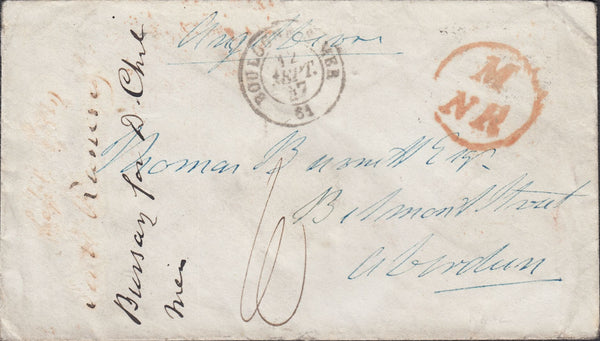 Angleterre
BOULOGNE-S-MER
12
SEPT.
47
61
M
NR
Thomas Burnett Esqr.
Belmont Street
Aberdeen
Bursary for D.